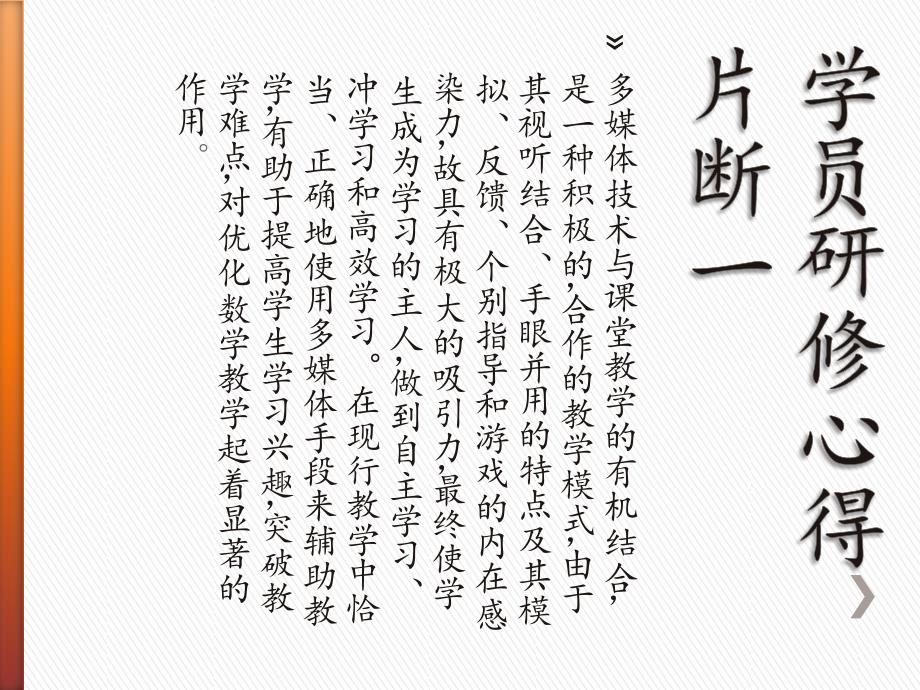 学员研修心得
片断一
多媒体技术与课堂教学的有机结合,
是一种积极的,合作的教学模式,由于
其视听结合、手眼并用的特点及其模
拟、反馈、个别指导和游戏的内在感
染力,故具有极大的吸引力,最终使学
生成为学习的主人,做到自主学习、
冲学习和高效学习。在现行教学中恰
当、正确地使用多媒体手段来辅助教
学,有助于提高学生学习兴趣,突破教
学难点,对优化数学教学起着显著的
作用。